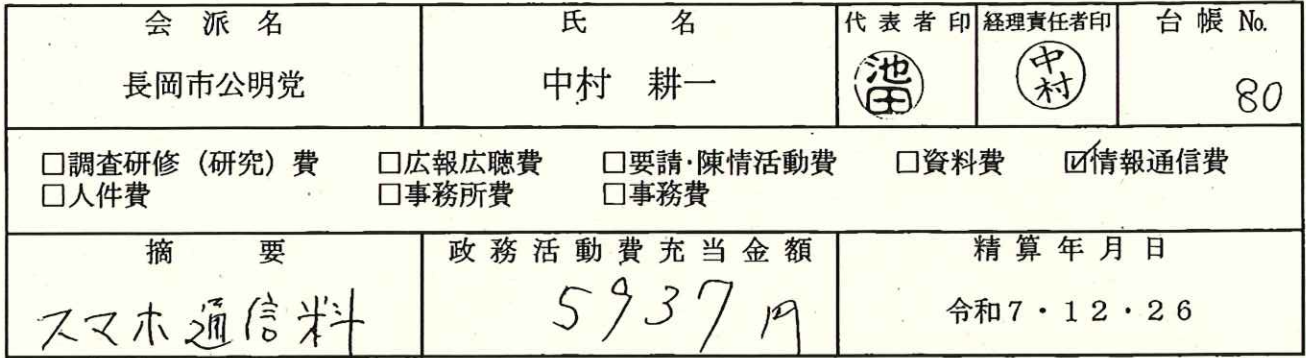 会派名 氏名 代表者印 経理責任者印 台帳 No.
長岡市公明党 中村 耕一 池田 中村 80
□調査研修(研究)費 □広報広聴費 □要請・陳情活動費 □資料費 ☑情報通信費
□人件費 □事務所費 □事務費
摘要 政務活動費充当金額 精算年月日
スマホ通信料 5937円 令和7・12・26